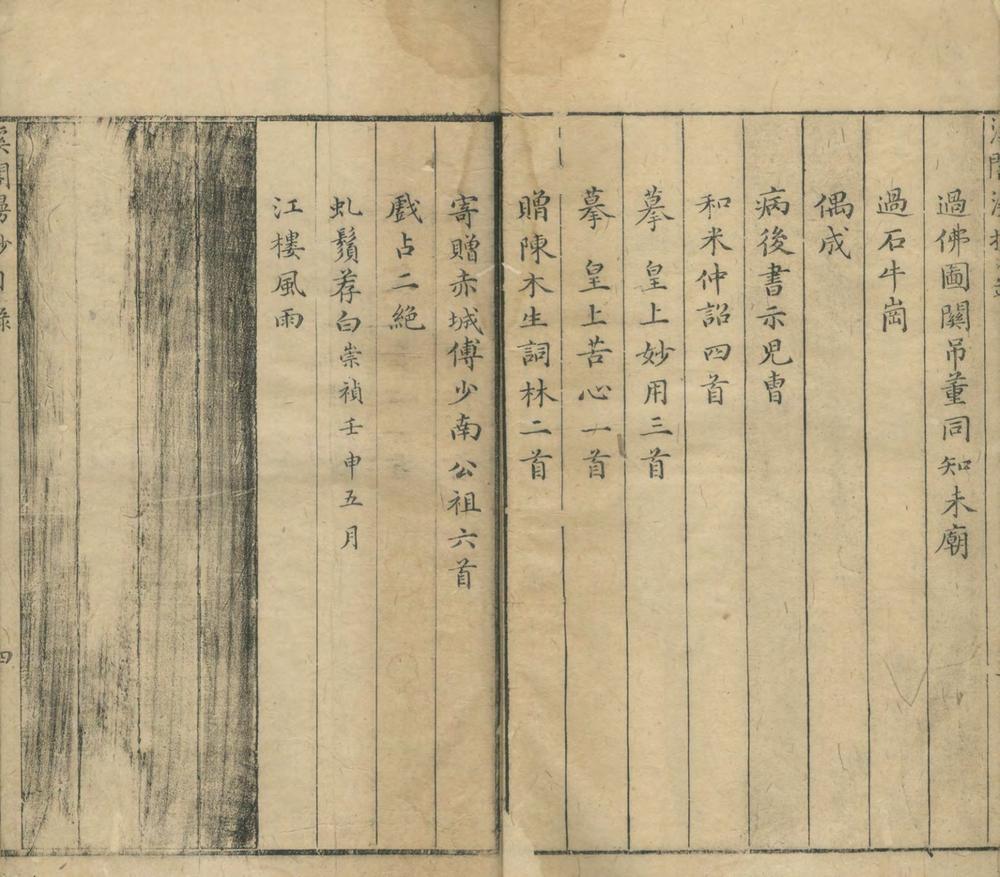 過佛圖關吊董同知未廟
過石牛崗
偶成
病後書示児曹
和米仲詔四首
摹 皇上妙用三首
摹 皇上苦心一首
贈陳木生詞林二首
寄贈赤城傅少南公祖六首
戲占二絕
虬鬚荐白崇禎壬申五月
江樓風雨
四